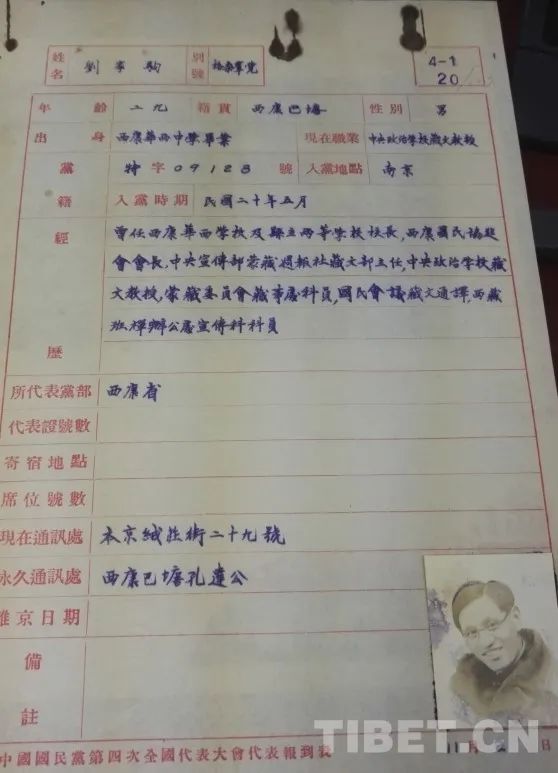 姓名 劉家駒 別號 格桑羣覺
4-1
20
年齡 二九 籍貫 西康巴塘 性別 男
出身 西康華西中學畢業 現在職業 中央政治學校藏文教授
黨籍 特字09128號 入黨地點 南京
入黨時期 民國二十年五月
經歷 曾任西康華西學校及縣立高等學校校長,西康國民協進
會會長,中央宣傳部蒙藏週報社藏文部主任,中央政治學校藏
文教授,蒙藏委員會藏事處科員,國民會議藏文通譯,西藏
班禪辦公處宣傳科科員
所代表黨部 西康省
代表證號數
寄宿地點
席位號數
現在通訊處 本京絨莊街二十九號
永久通訊處 西康巴塘孔達公
離京日期
備註
中國國民黨第四次全國代表大會代表報到表
11月 日
TIBET.CN